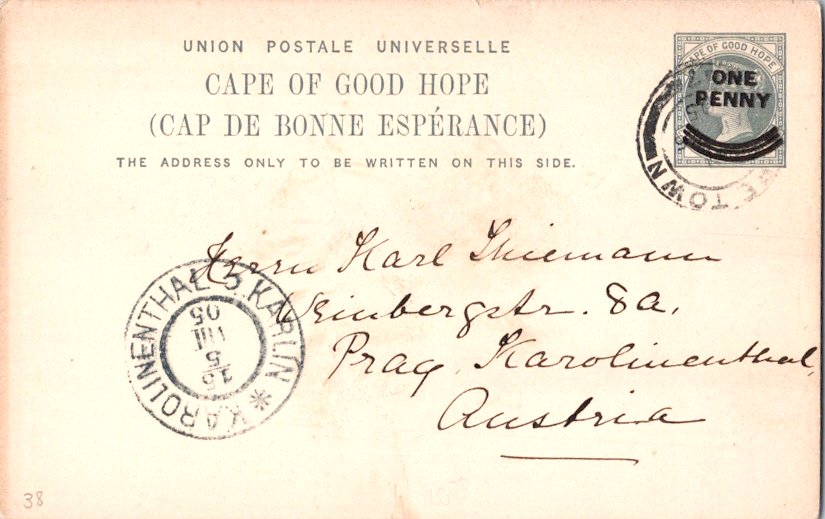 UNION POSTALE UNIVERSELLE
CAPE OF GOOD HOPE
(CAP DE BONNE ESPÉRANCE)
THE ADDRESS ONLY TO BE WRITTEN ON THIS SIDE.
CAPE OF GOOD HOPE
ONE
PENNY
TOWN
Herrn Karl Thiemann
Weinbergstr. 8a,
Prag Karolinenthal,
Austria
KAROLINENTHAL 3 KARLÍN
15
5
VIII
05
38